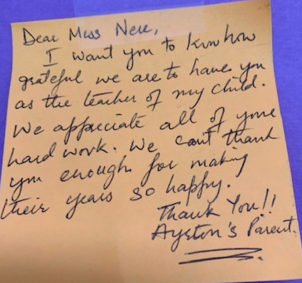 Dear Miss Nene,
I want you to know how
grateful we are to have you
as the teacher of my child.
We appriciate all of your
hard work. We cant thank
you enough for making
their years so happy.
Thank You!!
Ayston's Parent.